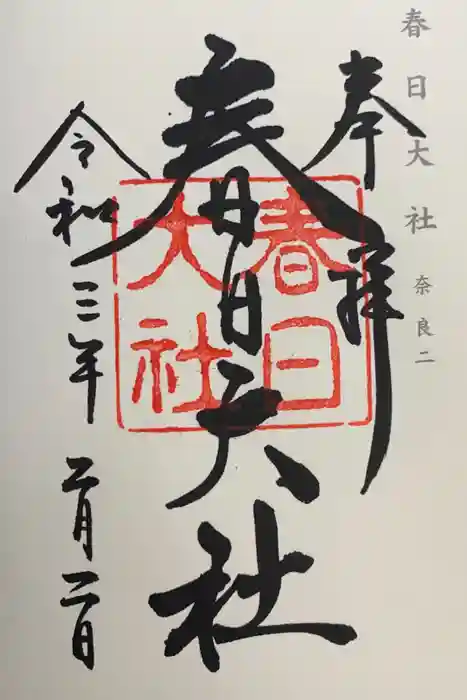 春日大社
奈良二
奉拝
春日大社
春日
大社
令和三年二月二日